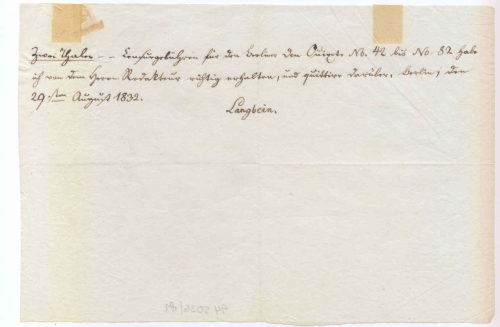 Zwei Thaler – – Censurgebühren für den Berliner Don Quixote No. 42 bis No. 82 habe
ich von dem Herrn Redakteur richtig erhalten, und quittire darüber. Berlin, den
29sten August 1832.
Langbein.